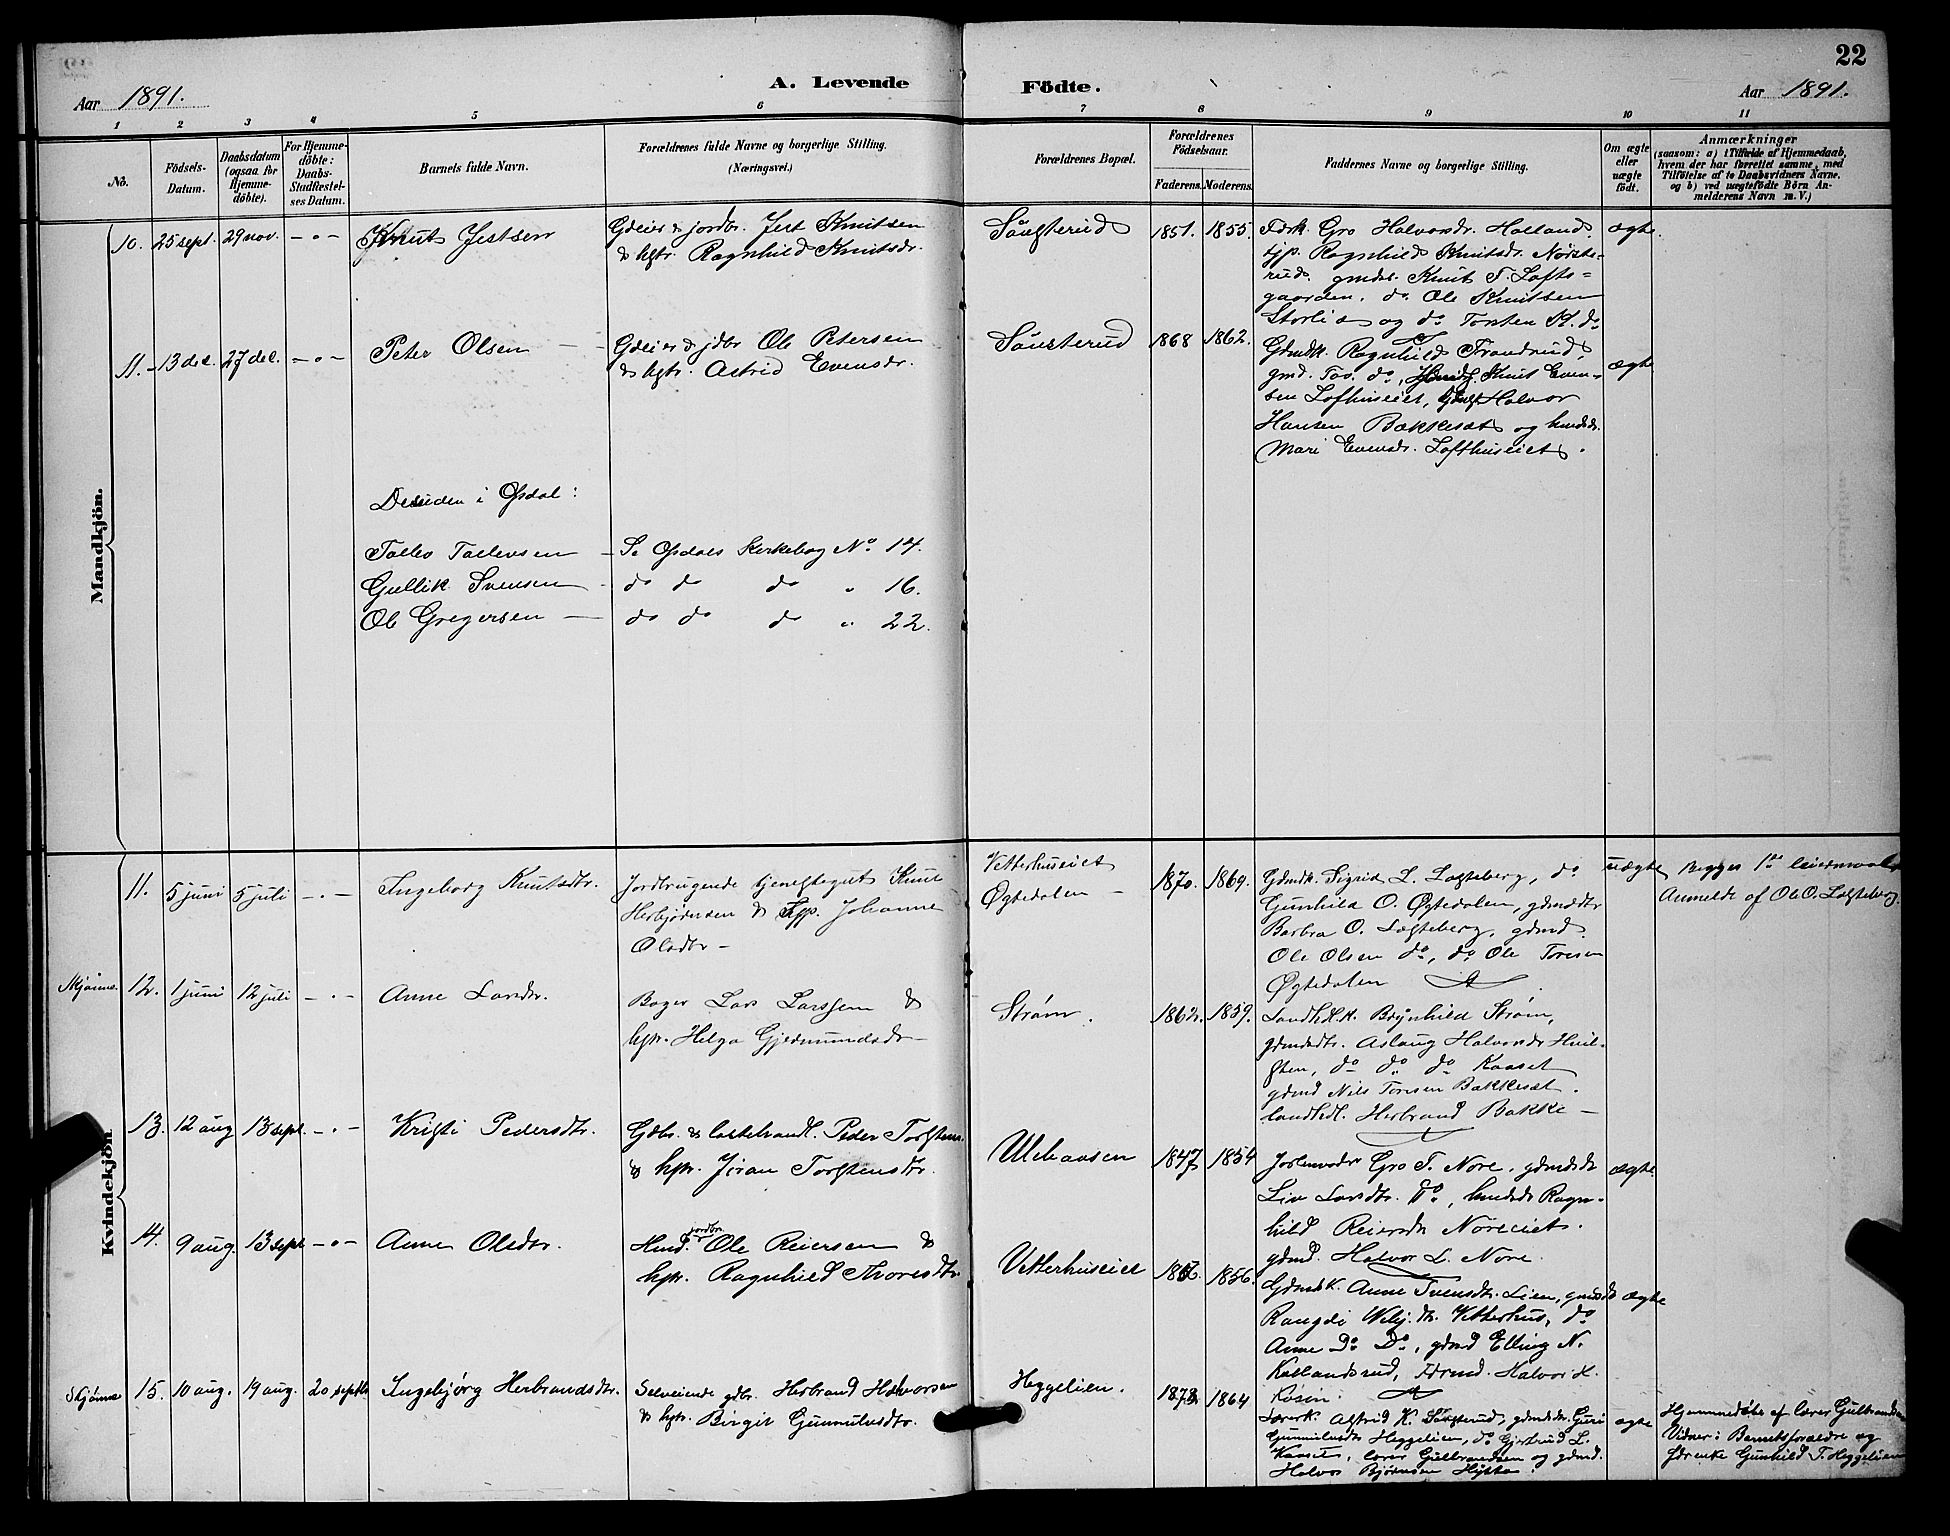 22
A. Levende Födte.
Aar 1891.
Aar 1891.
1 2 3 4 5 6 7 8 9 10 11
No.
Födsels-Datum.
Daabsdatum (ogsaa for Hjemme-döbte).
For Hjemme-döbte: Daabs-Stadfæstel-ses Datum.
Barnets fulde Navn.
Forældrenes fulde Navne og borgerlige Stilling.
(Næringsvei.)
Forældrenes Bopæl.
Forældrenes Födselsaar.
Faderens. Moderens.
Faddernes Navne og borgerlige Stilling.
Om ægte eller uægte födt.
Anmærkninger
(saasom: a) i Tilfælde af Hjemmedaab,
hvem der har forrettet samme, med
Tilföielse af to Daabsvidners Navne.
og b) ved uægtefödte Börn An-
melderens Navn m. V.)
Mandkjön.
10. 25 sept. 29 nov. - " - Knut Jestsen
Gdeier & jordbr. Jest Knutsen
& hgtr. Ragnhild Knutsdr.
1851. 1855.
Gro Halvorsdr. Holland.
Ragnhild Knutsdr. Nørste-
rud. gmd. Knut T. Lofts-
gaarden. do Ole Knutsen
Storlia og do Torsten K. do
ægte.
11. 13 dec. 27 dec. - " - Peter Olsen
Gdeier & jdbr Ole Petersen
& hgtr. Astrid Evensdr.
1868 1862.
Gdmdk. Ragnhild Trondrud,
gmd. Tov. do, Knut Even-
sen Lofthuseiet, Halvor
Hansen Bækkesæt og
Mari Evensdr. Lofthuseiet.
ægte
Desuden i Opdal:
Tollev Tollevsen - Se Opdals Kirkebog No 14.
Gullik Svensen do do do " 16.
Ole Gregersen - do do do " 22.
Kvindekjön
11. 5 juni 5 juli - " - Ingeborg Knutsdtr.
Jordbrugende tjenestegut Knut
Herbjørnsen & Johanne
Olsdtr -
Vetterhuseiet
Øgtedalen -
1870. 1869.
Gdmdk. Sigrid L. Logteberg, do
Gunhild O. Øgtedalen, gdmddtr
Barbra O. Logteberg, gdmd
Ole Olsen do, do Ole Toresen
Øgtedalen
uægte
Begges 1ste leiermaal
Anmeldt af Ole O. Logteberg.
Skjønne. 12. 1 juni 12 juli - " - Anne Larsdtr.
Bager Lars Larssen &
hgtr. Helga Gjermundsdr -
Strøm.
1862. 1859.
Brynhild Strøm,
gdmdsdtr. Aslaug Halvorsdr
do do do Kaaset
gdmd Nils Toresen Bækkesæt.
Herbrand Bakke -
13. 12 aug 13 sept. - " - Kristi Pedersdtr.
Gdbr. & Peder Torstens.
& hgtr. Jøran Torstensdtr.
1847 1854
Gro T. Nore, gdmdsdtr
Liv Larsdtr. do, Ragn-
hild Reiersdtr Noreeiet.
gdmd. Halvor L. Nore.
ægte.
14. 9 aug. 13 sept - " - Anne Olsdtr.
Hmd. jordbr. Ole Reiersen &
hgtr. Ragnhild Thoresdtr
Vetterhuseiet
1856.
Gdmdk. Anne Svensdtr. Lien,
Rangdi Vetterhus, do
Anne Do Do, gdmd Elling N.
Kallandsrud, Halvor H.
Rosin.
ægte
Skjønne 15. 10 aug. 19 aug. 20 septbr. Ingebjørg Herbrandsdtr.
Selveiende gdbr. Herbrand Halvorsen
& hgtr. Birgit Gunnulvsdtr.
Heggelien.
1864
Lærerk. Astrid K. gdmdsdtr. Guri
Gunnulvsdtr Heggelien, do Gjertrud L.
Kaaset, lærer Gulbrandsen og gdmd.
Halvor Bjørnsen Hytta.
ægte
Hjemmedøbt af lærer Gulbrandsen
Vidner: Barnets forældre og
Gunhild T. Heggelien